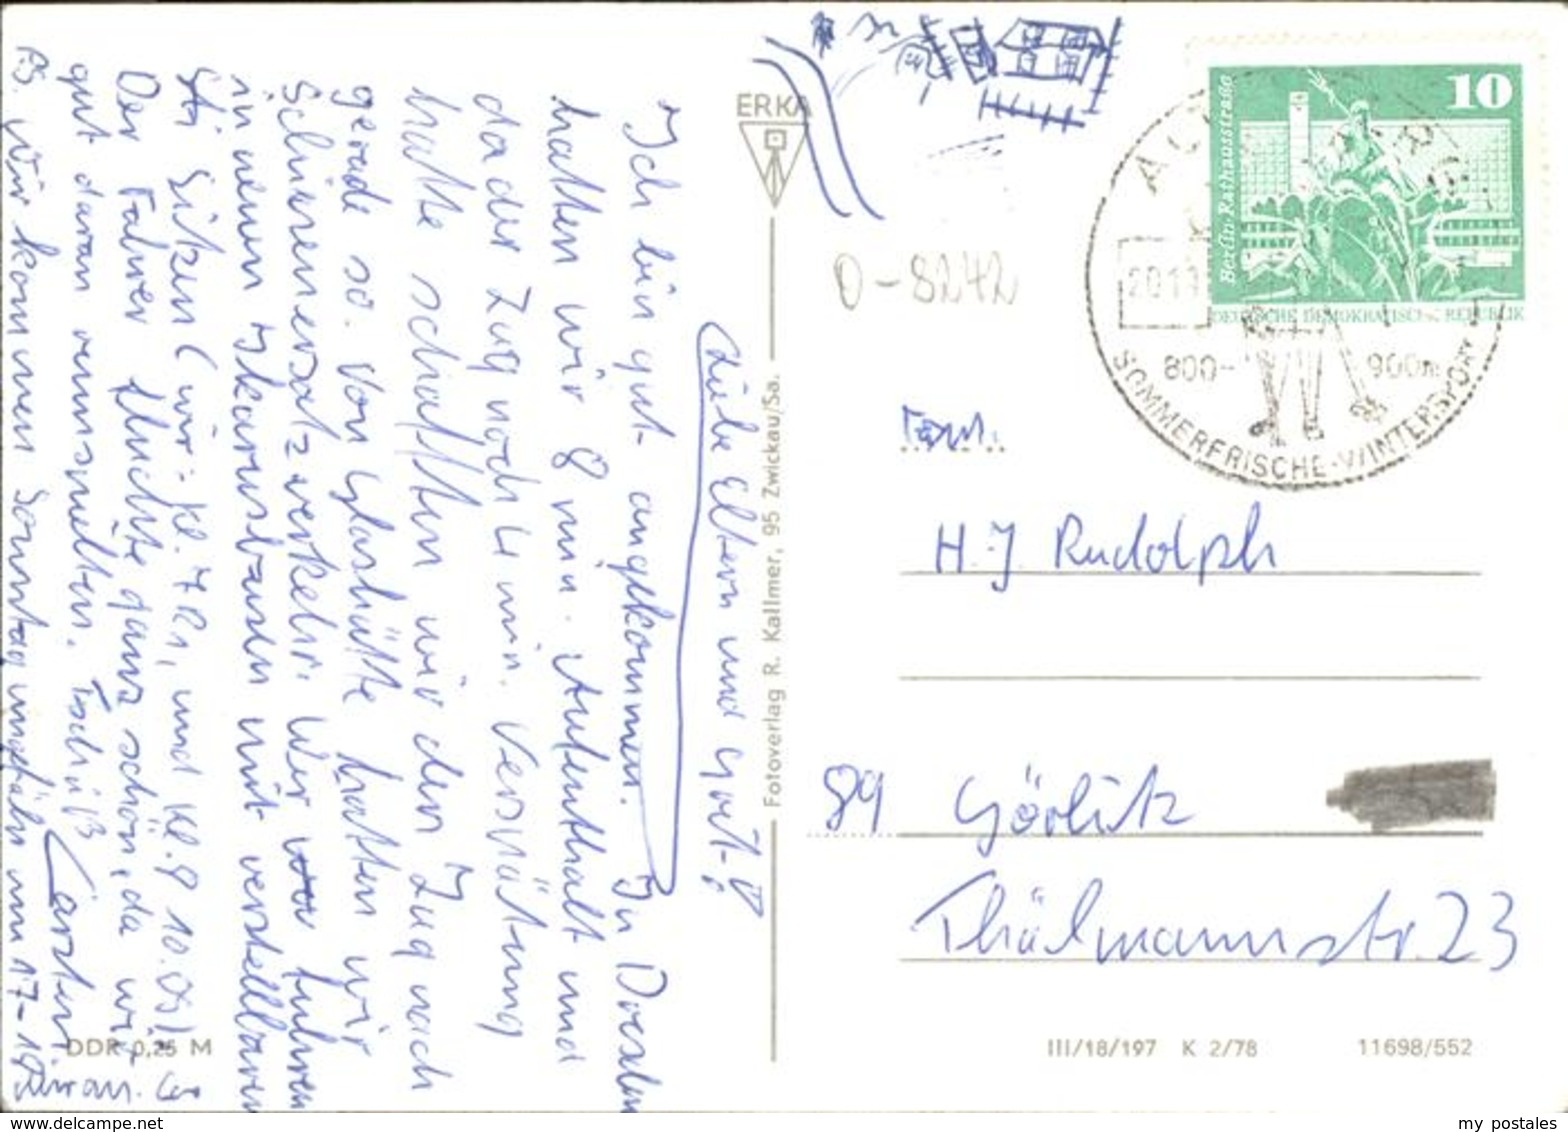 Liebe Eltern und Gört!
Ich bin gut angekommen. In Dresden
hatten wir 8 min. Aufenthalt und
da der Zug noch 4 min. Verspätung
hatte schafften wir den Zug nach
gerade so. Von Glashütte hatten wir
Schienenersatzverkehr. Wir fuhren
in neuen Ikarusbussen mit verstellbaren
Sitzen (wir: Kl. 7 R1, und Kl. 9 10. OS)
Der Fahrer fluchte ganz schön, da wir
gut daran rumspielten. Tschüß Carsten.
PS. Wir kommen Sonntag ungefähr um 17-18 an.
DDR 0,25 M
ERKA
Fotoverlag R. Kallmer, 95 Zwickau/Sa.
0-8242
10
Berlin, Rathausstraße
DEUTSCHE DEMOKRATISCHE REPUBLIK
800-
900m
SOMMERFRISCHE-WINTERSPORT
Fam.
H.J Rudolph
89 Görlitz
Thälmannstr. 23
III/18/197 K 2/78 11698/552
www.delcampe.net
my postales